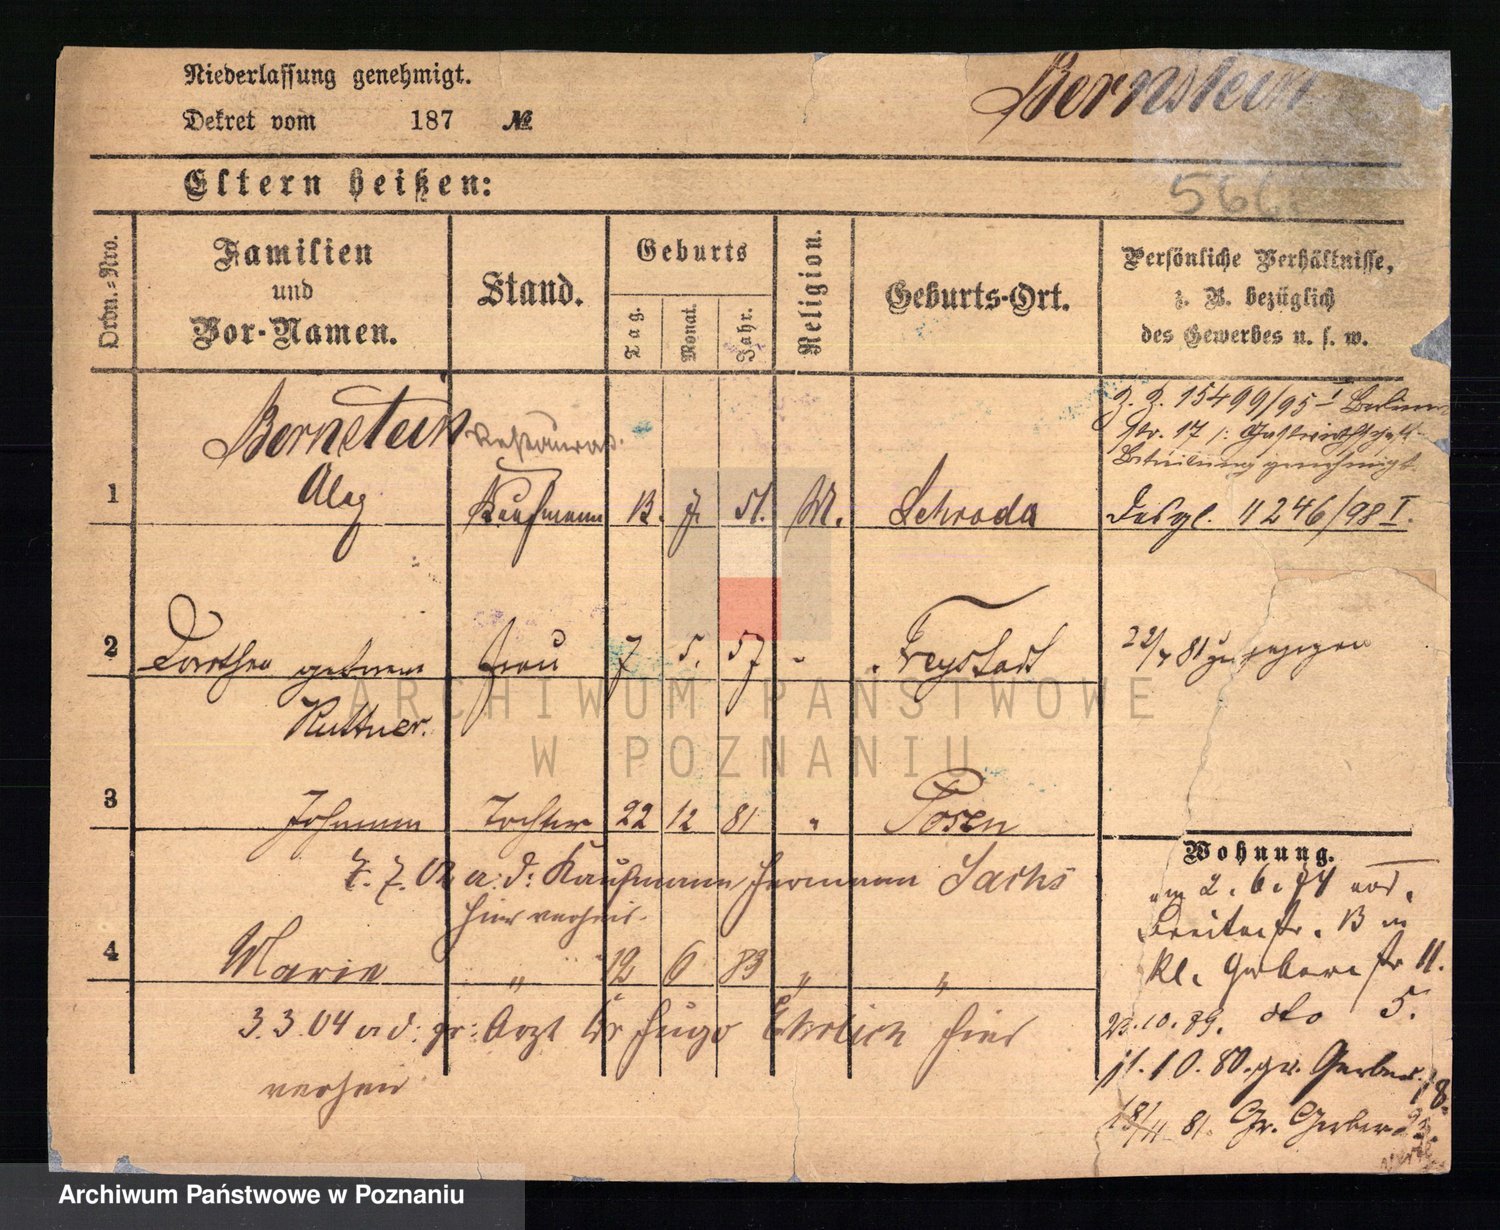 Niederlassung genehmigt.
Dekret vom 187 №
Bernstein
566.
Eltern heißen:
Ordn.-Nro.
Familien
und
Vor-Namen.
Stand.
Geburts
Tag.
Monat.
Jahr.
Religion.
Geburts-Ort.
Persönliche Verhältnisse,
z. B. bezüglich
des Gewerbes u. s. w.
Bernstein Restaurat.
1 Alex Kaufmann 13. 7. 51. M. Schroda
15499/95 I
Str. 17 Gastwirthschaft
genehmigt
Desgl. 11246/98 I.
2 Dorothea geborene Frau 7 5. 57 " Freystadt
Kuttner.
22/7 81 zugezogen
3 Johanna Tochter 22 12 81 " Posen
7. 7. 02 a. d. Kaufmann Hermann Sachs
hier verheir.
4 Marie " 12 6 83 " "
3.3.04 a d. pr. Arzt Dr Hugo Ehrlich hier
verheir
Wohnung.
2. 6. 74
Breitestr. 13 in
kl. Gerberstr 11.
10. 89. dto 5.
11. 10. 80. gr. Gerber. 18.
18/11 81. Gr. Gerber 23.
ARCHIWUM PAŃSTWOWE
W POZNANIU
Archiwum Państwowe w Poznaniu